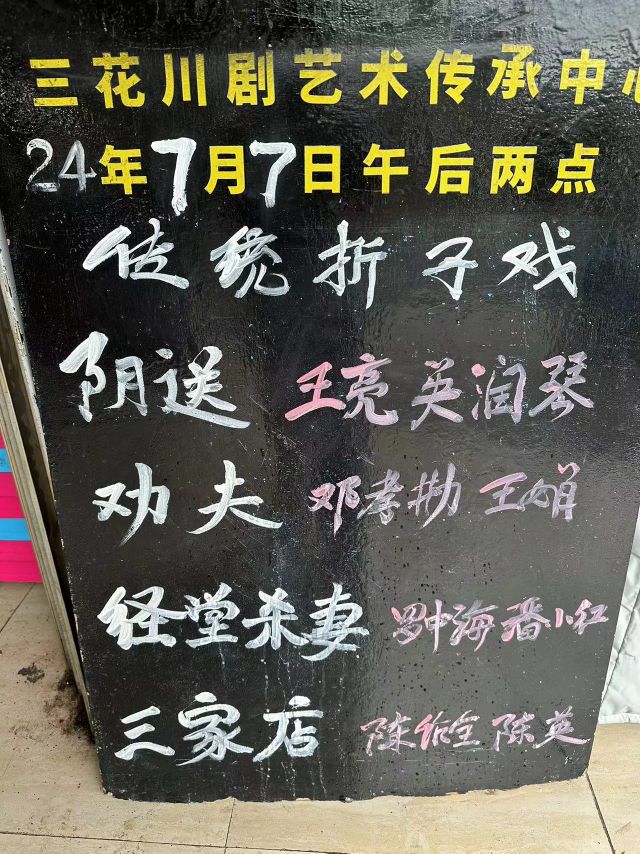 三花川剧艺术传承中心
24年7月7日午后两点
传统折子戏
阴送 王亮 英润琴
劝夫 邓孝勘 王娟
经堂杀妻 罗中海 番小红
三家店 陈佑全 陈英